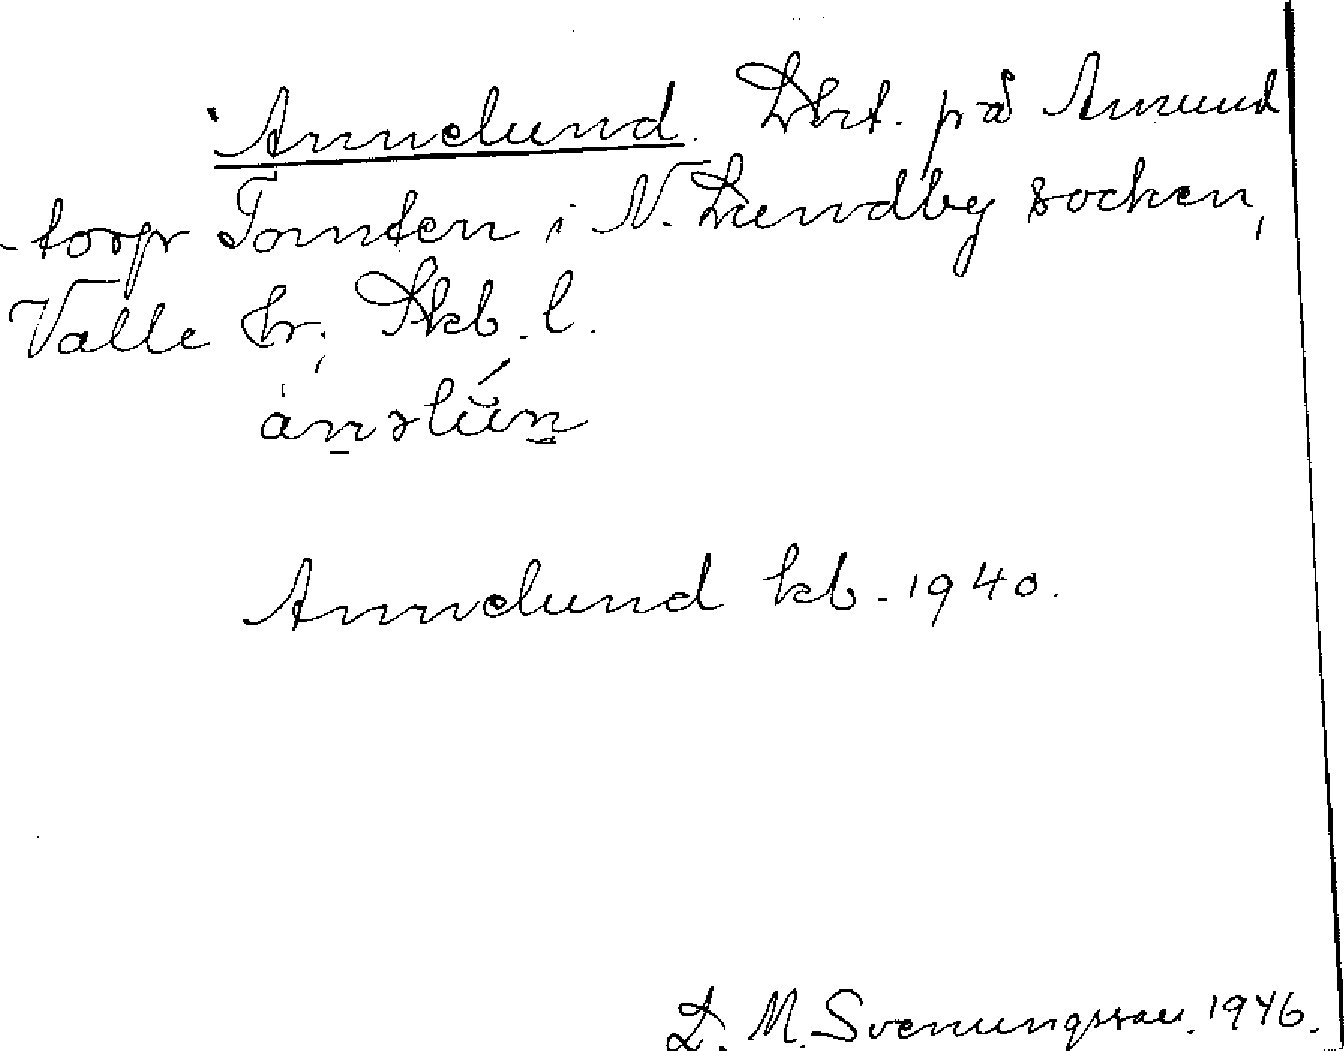 Annelund. Lht. på Amund
-torp Tomten i N. Lundby socken,
Valle hr; Skb. l.
Annelund kb. 1940.
D. M. Svenungsson. 1946.